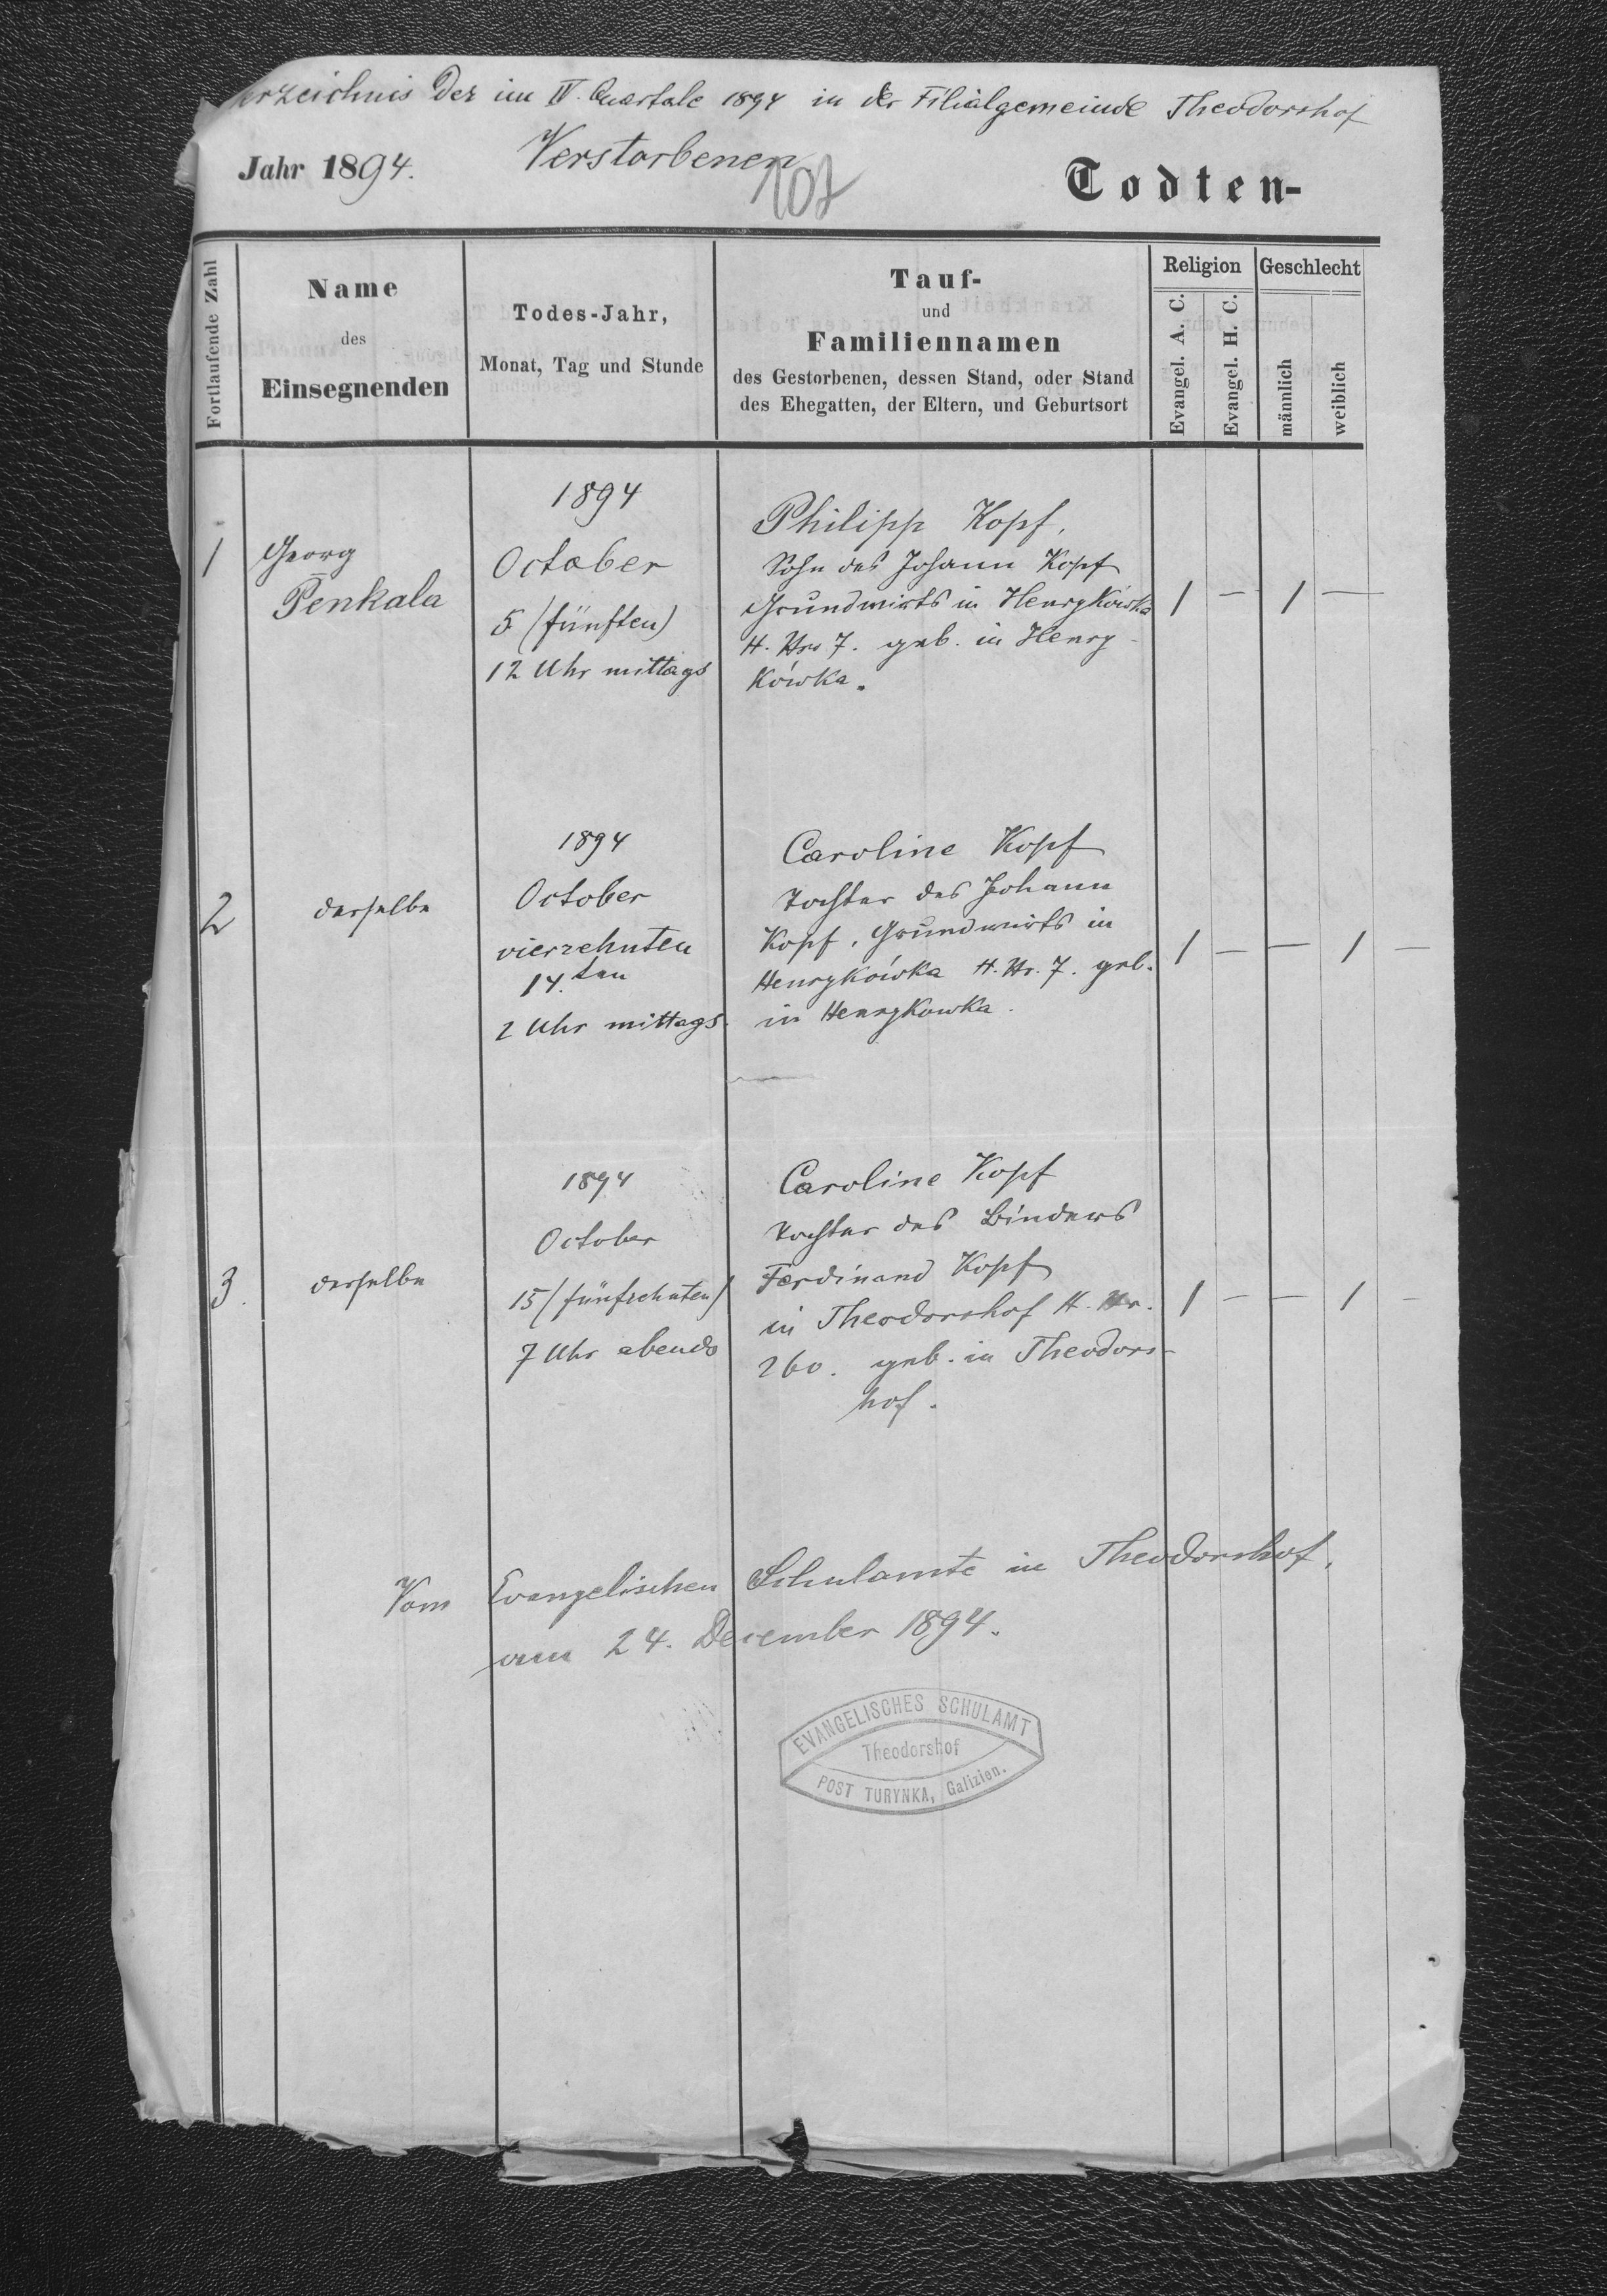 erzeichnis der im IV. Quartale 1894 in der Filialgemeinde Theodorshof
Jahr 1894.
Verstorbenen
107
Todten-
Fortlaufende Zahl
Name
des
Einsegnenden
Todes-Jahr,
Monat, Tag und Stunde
Tauf-
und
Familiennamen
des Gestorbenen, dessen Stand, oder Stand
des Ehegatten, der Eltern, und Geburtsort
Religion
Evangel. A. C.
Evangel. H. C.
Geschlecht
männlich
weiblich
1
Georg
Penkala
1894
October
5 (fünften)
12 Uhr mittags
Philipp Kopf,
Sohn des Johann Kopf
Grundwirts in Henrykówka
H. Nro 7. geb. in Henry-
kówka.
1 — 1 —
2
derselbe
1894
October
vierzehnten
14. ten
2 Uhr mittags
Caroline Kopf
Tochter des Johann
Kopf, Grundwirts in
Henrykówka H. Nr. 7. geb.
in Henrykowka.
1 — — 1 —
3.
derselbe
1894
October
15 (fünfzehnten)
7 Uhr abends
Caroline Kopf
Tochter des Binders
Ferdinand Kopf
in Theodorshof H. Nr.
260. geb. in Theodors-
hof.
1 — — 1 —
Vom Evangelischen Schulamte in Theodorshof,
am 24. December 1894.
EVANGELISCHES SCHULAMT
Theodorshof
POST TURYNKA, Galizien.